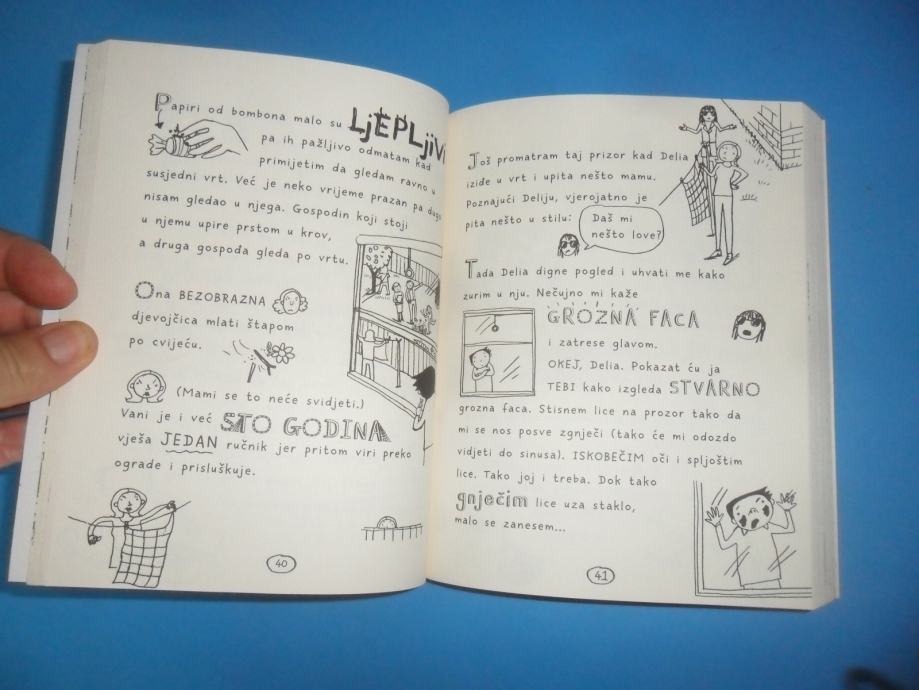 Papiri od bombona malo su LjEPLjiVi
pa ih pažljivo odmatam kad
primijetim da gledam ravno u
susjedni vrt. Već je neko vrijeme prazan pa dugo
nisam gledao u njega. Gospodin koji stoji
u njemu upire prstom u krov,
a druga gospođa gleda po vrtu.
Ona BEZOBRAZNA
djevojčica mlati štapom
po cvijeću.
(Mami se to neće svidjeti.)
Vani je i već STO GODINA
vješa JEDAN ručnik jer pritom viri preko
ograde i prisluškuje.
40
Još promatram taj prizor kad Delia
iziđe u vrt i upita nešto mamu.
Poznajući Deliju, vjerojatno je
pita nešto u stilu:
Daš mi
nešto love?
Tada Delia digne pogled i uhvati me kako
zurim u nju. Nečujno mi kaže
GROZNA FACA
i zatrese glavom.
OKEJ, Delia. Pokazat ću ja
TEBI kako izgleda STVARNO
grozna faca. Stisnem lice na prozor tako da
mi se nos posve zgnječi (tako će mi odozdo
vidjeti do sinusa). ISKOBEČIM oči i spljoštim
lice. Tako joj i treba. Dok tako
gnječim lice uza staklo,
malo se zanesem...
41